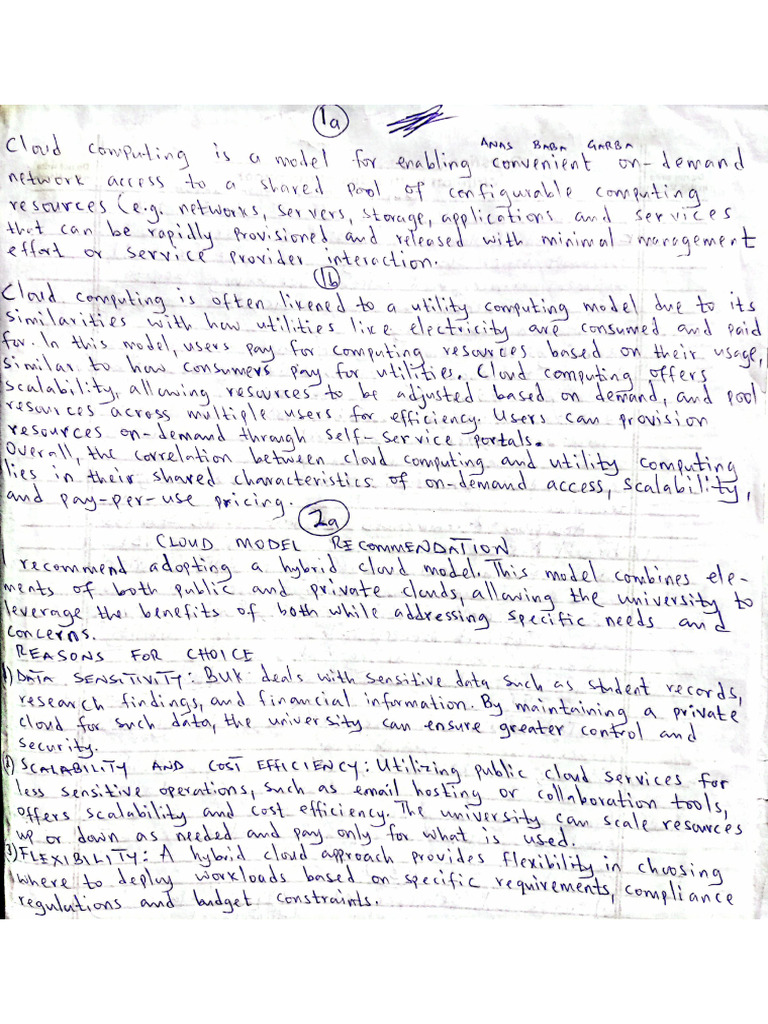 1a
ANAS BABA GARBA
Cloud computing is a model for enabling convenient on-demand
network access to a shared pool of configurable computing
resources (e.g. networks, servers, storage, applications and services
that can be rapidly provisioned and released with minimal management
effort or service provider interaction.
1b
Cloud computing is often likened to a utility computing model due to its
similarities with how utilities like electricity are consumed and paid
for. In this model, users pay for computing resources based on their usage,
similar to how consumers pay for utilities. Cloud computing offers
scalability, allowing resources to be adjusted based on demand, and pool
resources across multiple users for efficiency. Users can provision
resources on-demand through self-service portals.
Overall, the correlation between cloud computing and utility computing
lies in their shared characteristics of on-demand access, scalability,
and pay-per-use pricing.
2a
CLOUD MODEL RECOMMENDATION
I recommend adopting a hybrid cloud model. This model combines ele-
ments of both public and private clouds, allowing the university to
leverage the benefits of both while addressing specific needs and
concerns.
REASONS FOR CHOICE
1) DATA SENSITIVITY: BUK deals with sensitive data such as student records,
research findings, and financial information. By maintaining a private
cloud for such data, the university can ensure greater control and
security.
2) SCALABILITY AND COST EFFICIENCY: Utilizing public cloud services for
less sensitive operations, such as email hosting or collaboration tools,
offers scalability and cost efficiency. The university can scale resources
up or down as needed and pay only for what is used.
3) FLEXIBILITY: A hybrid cloud approach provides flexibility in choosing
where to deploy workloads based on specific requirements, compliance
regulations and budget constraints.